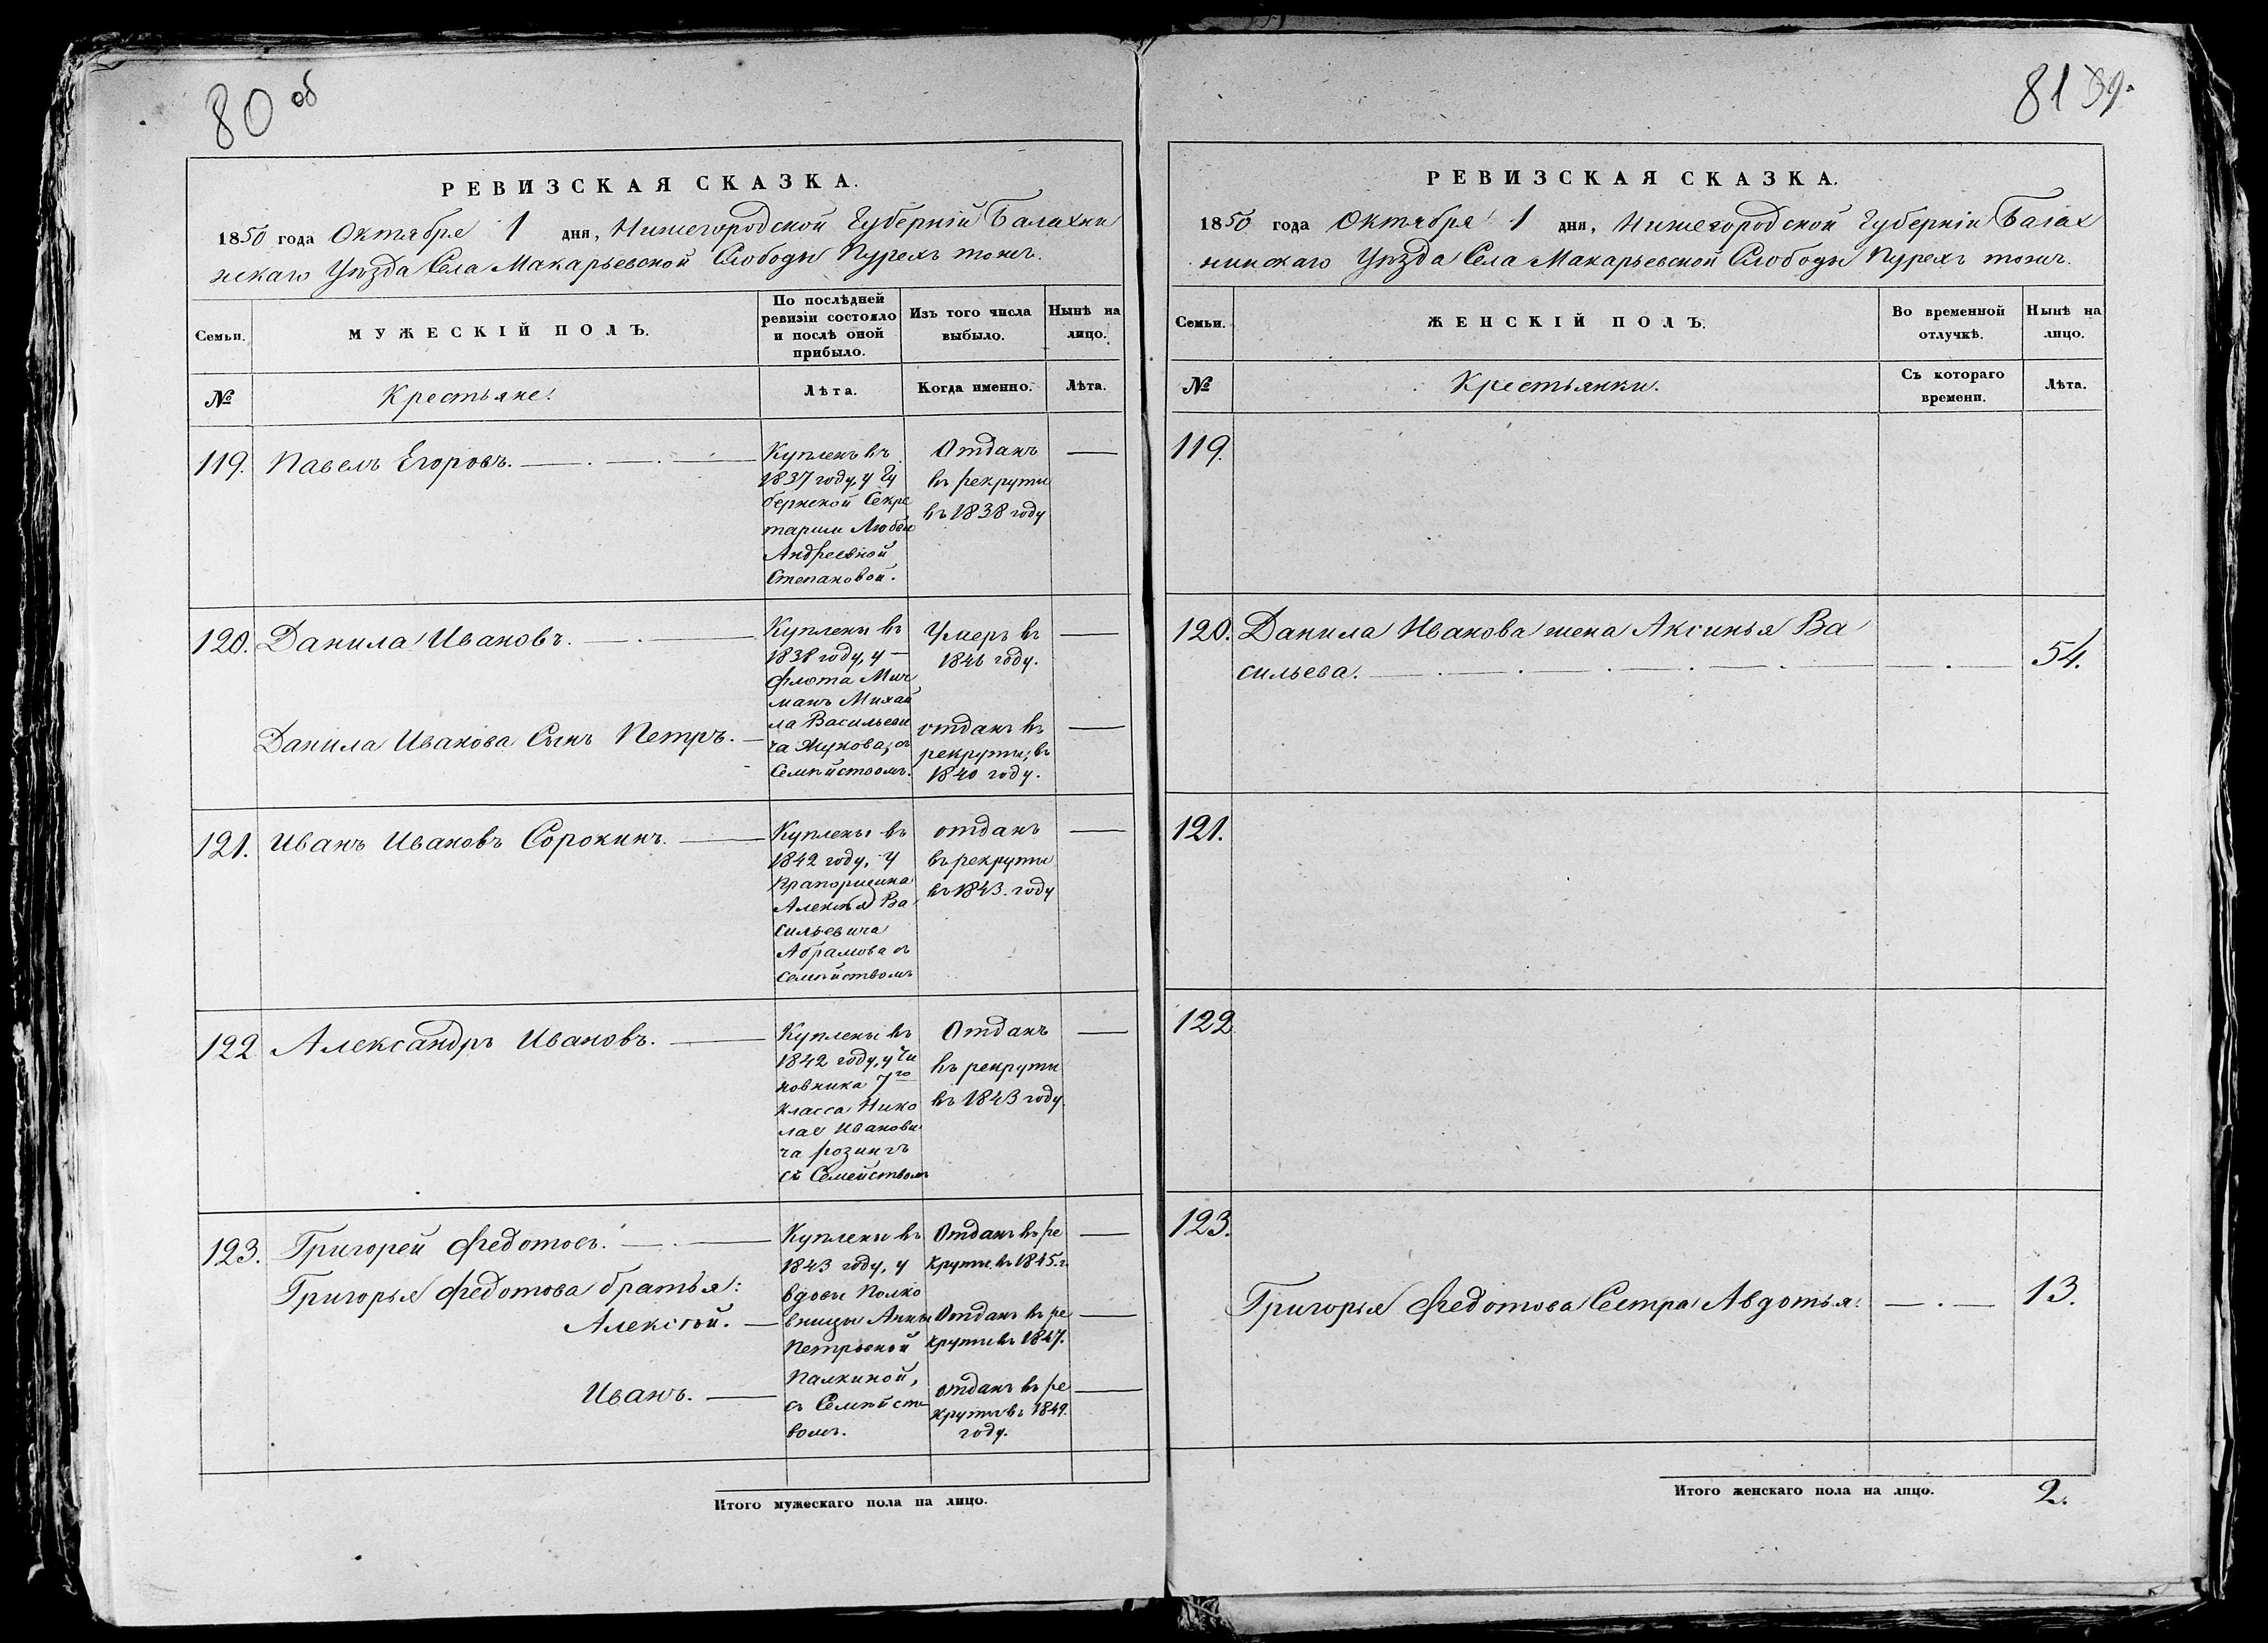 80 об
РЕВИЗСКАЯ СКАЗКА.
1850 года Октября 1 дня, Нижегородской Губерніи Балахни
нскаго Уѣзда Села Макарьевской Слободы Пурехъ тожъ.
Семьи.
МУЖЕСКІЙ ПОЛЪ.
По послѣдней
ревизіи состояло
и послѣ оной
прибыло.
Изъ того числа
выбыло.
Нынѣ на
лицо.
№
Крестьяне.
Лѣта.
Когда именно.
Лѣта.
119. Павелъ Егоровъ.
Купленъ въ
1837 году, у Гу
бернской Секре
тарши Любви
Андреевной
Степановой.
Отданъ
въ рекруты
въ 1838 году
120. Данила Ивановъ.
Данила Иванова Сынъ Петръ.
Куплены въ
1838 году, у
флота Мич
манъ Михаи
ла Васильеви
ча Жукова, съ
Семѣйствомъ.
Умеръ въ
1846 году.
отданъ въ
рекруты, въ
1840 году.
121. Иванъ Ивановъ Сорокинъ.
Куплены въ
1842 году, у
Прапорщика
Алексѣя Ва
сильевича
Абрамова съ
семѣйствомъ
отданъ
въ рекруты
въ 1843. году
122 Александръ Ивановъ.
Куплены въ
1842 году, у Чи
новника 7го
класса Нико
лае Иванови
ча Розингъ
съ Семействомъ
Отданъ
въ рекруты
въ 1843 году.
123. Григорей Федотовъ.
Григорья Федотова братья:
Алексѣй.
Иванъ.
Куплены въ
1843 году, у
вдовы Полко
вницы Анны
Петровной
Палкиной,
съ Семѣйст
вомъ.
Отданъ въ ре
круты въ 1845. г.
Отданъ въ ре
круты въ 1847.
отданъ въ ре
круты въ 1849.
году.
Итого мужескаго пола на лицо.
81 39.
РЕВИЗСКАЯ СКАЗКА.
1850 года Октября 1 дня, Нижегородской Губерніи Балах
нинскаго Уѣзда Села Макарьевской Слободы Пурехъ тожъ.
Семьи.
ЖЕНСКІЙ ПОЛЪ.
Во временной
отлучкѣ.
Нынѣ на
лицо.
№
Крестьянки.
Съ котораго
времени.
Лѣта.
119.
120. Данила Иванова жена Аксинья Ва
сильева. 54.
121.
122
123.
Григорья Федотова Сестра Авдотья. 13.
Итого женскаго пола на лицо. 2.